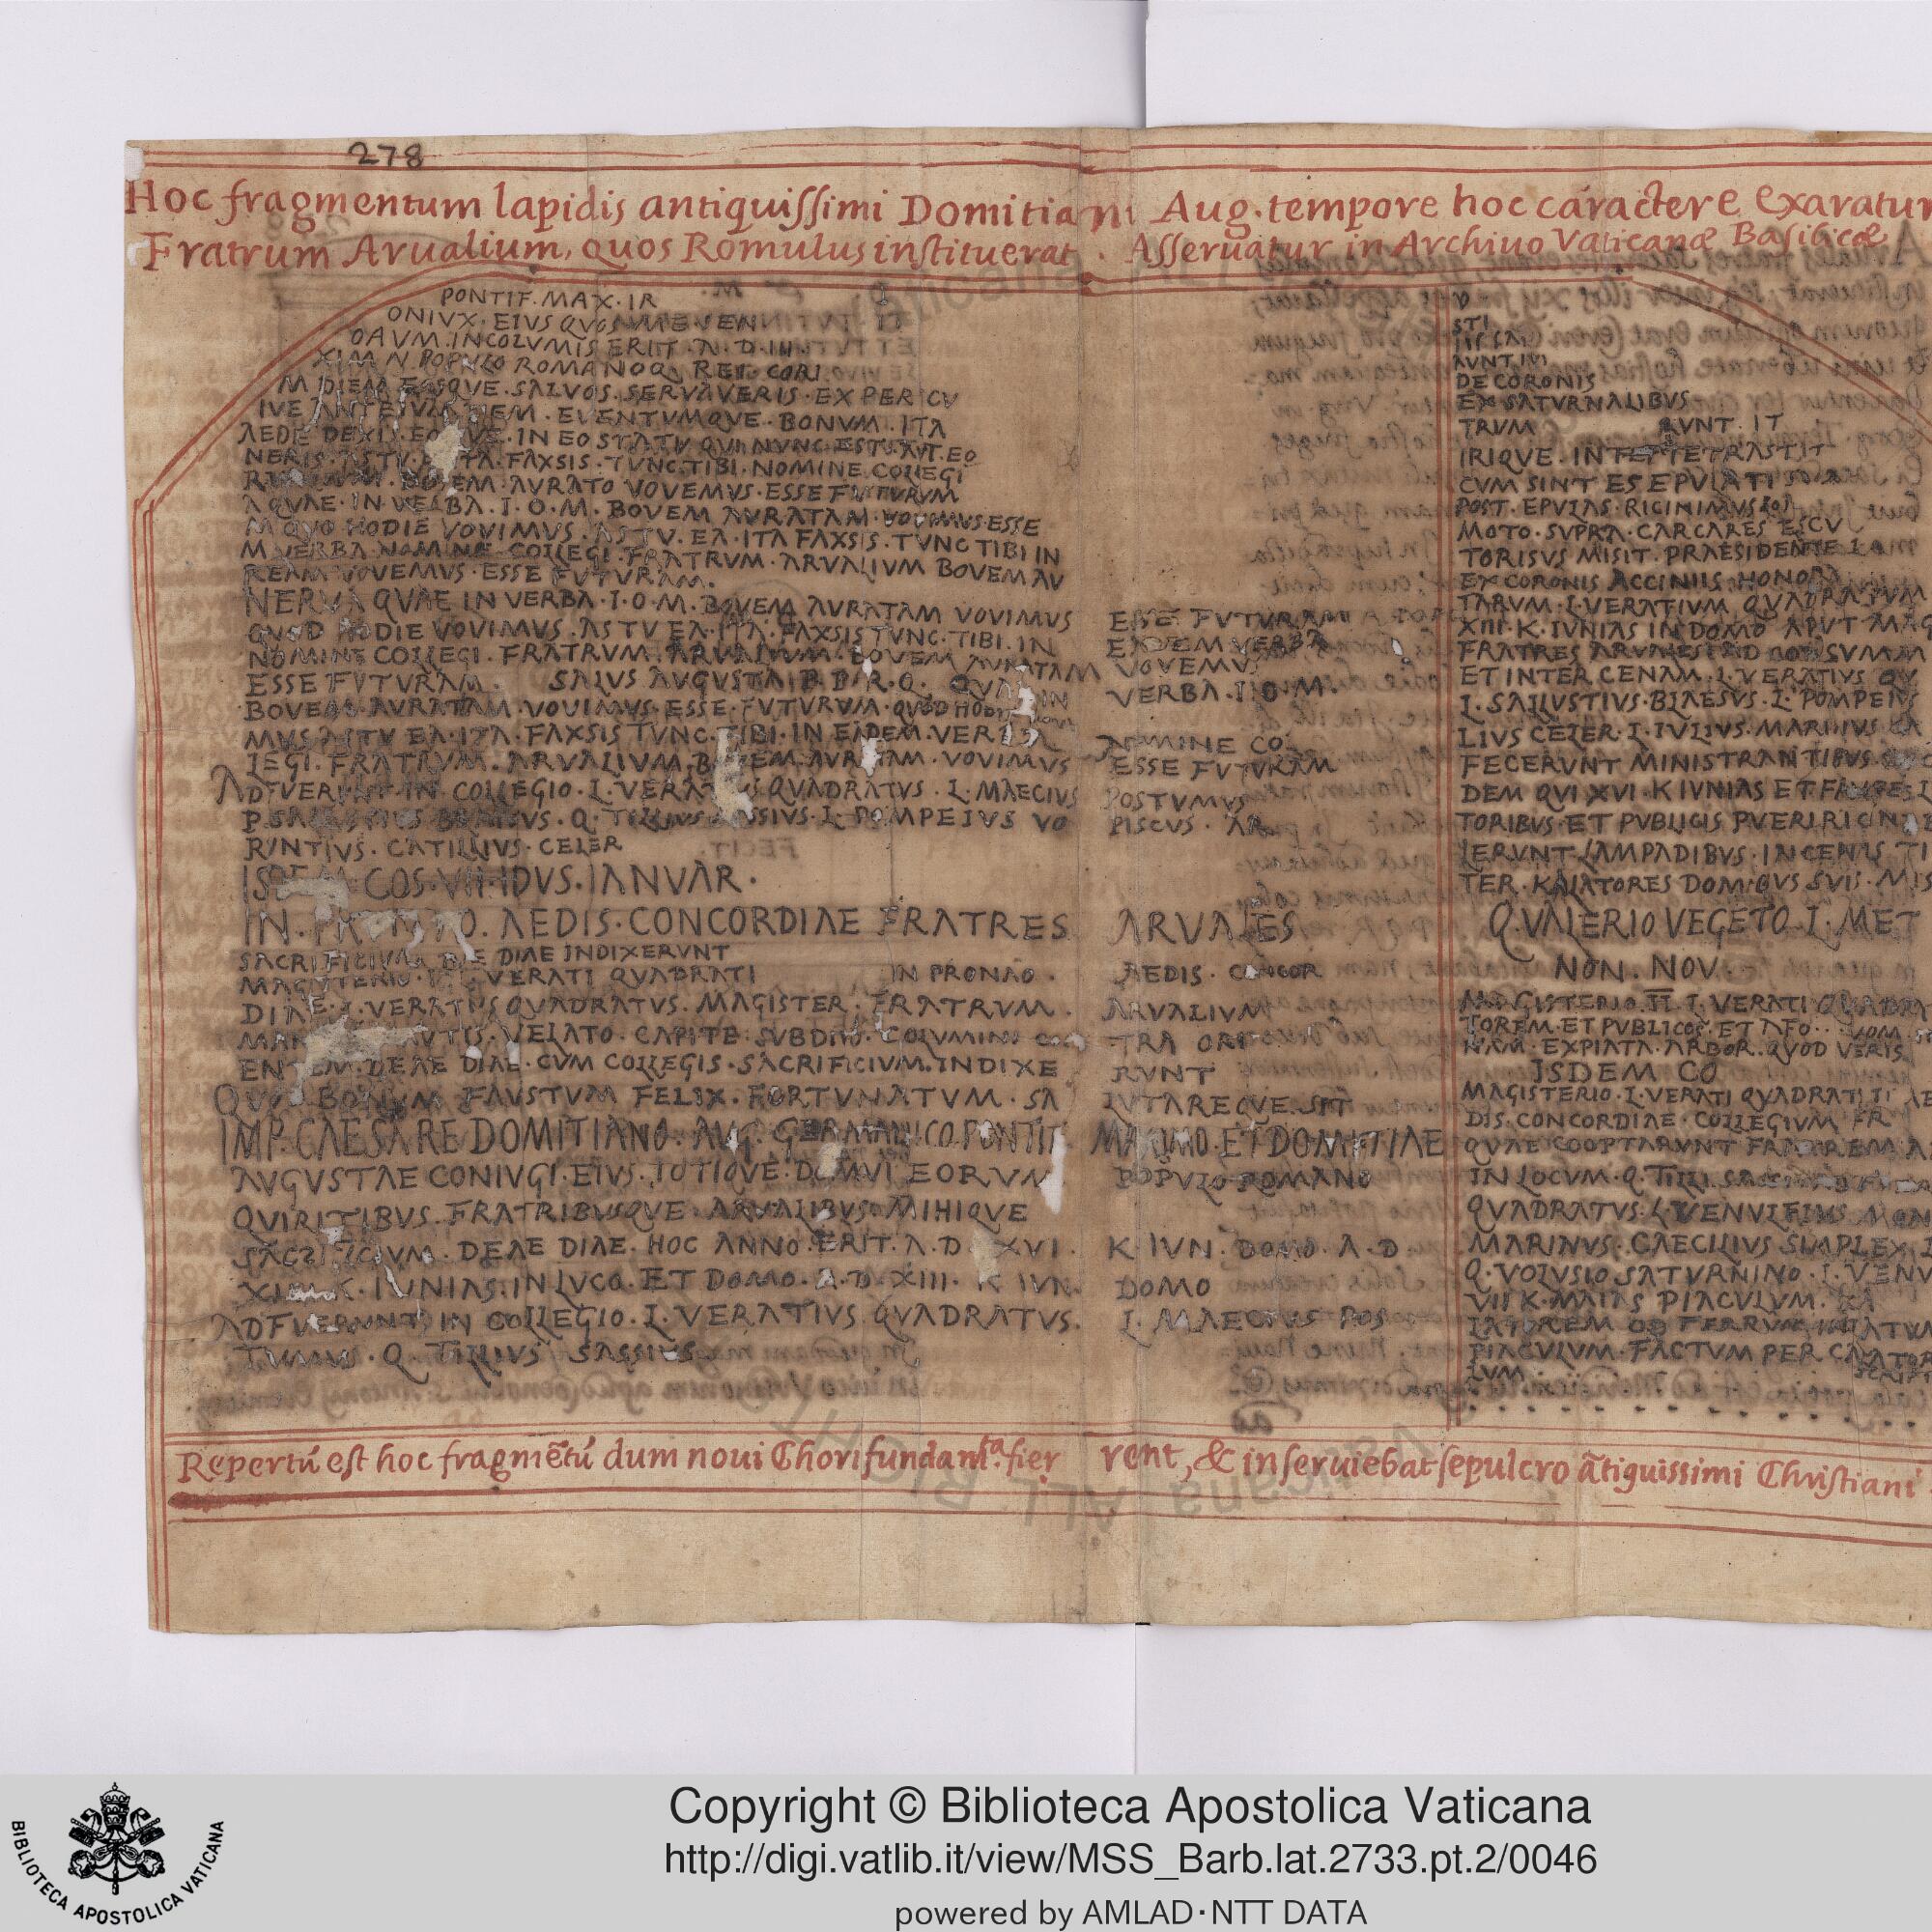 278
Hoc fragmentum lapidis antiquissimi Domitiani Aug. tempore hoc caractere exaratum
Fratrum Arualium, quos Romulus instituerat. Asseruatur in Archiuo Vaticanæ Basilicæ
PONTIF. MAX. IR
ONIVX. EIVS QVOS ME SEN
OAVM. INCOLVMIS ERIT. A. D. III.
XIM N. POPVLO ROMANO Q REI CORI
M DIEM EOSQVE. SALVOS. SERVAVERIS. EX PERICV
IVE ANTE EVM DIEM. EVENTVMQVE. BONVM. ITA
AEDE DEXI. EOSQVE. IN EO STATV QVI NVNC. EST. AVT. EO
NERIS. ASTV. ITA. FAXSIS. TVNC. TIBI. NOMINE COLLEGI
BOVEM AVRATO VOVEMVS. ESSE FVTVRVM
AQVAE. IN VERBA. I. O. M. BOVEM AVRATAM. VOVIMVS. ESSE
M QVO HODIE VOVIMVS. ASTV. EA. ITA FAXSIS. TVNC TIBI IN
M VERBA. NOMINE COLLEGI. FRATRVM. ARVALIVM BOVEM AV
REAM VOVEMVS. ESSE FVTVRAM.
NERVA QVAE IN VERBA. I. O. M. BOVEM AVRATAM VOVIMVS ESSE FVTVRAM
QVOD HODIE VOVIMVS. ASTV EA. ITA. FAXSIS TVNC. TIBI. IN EADEM VERBA
NOMINE COLLEGI. FRATRVM. ARVALIVM. BOVEM AVRATAM VOVEMVS
ESSE FVTVRAM. SALVS AVGVSTA P. R. Q. QVAE IN VERBA. I. O. M.
BOVEM. AVRATAM. VOVIMVS. ESSE. FVTVRAM. QVOD HODIE
MVS ASTV EA. ITA. FAXSIS TVNC. TIBI. IN EADEM. VERBA NOMINE CO
LEGI. FRATRVM. ARVALIVM. BOVEM. AVRATAM. VOVIMVS ESSE FVTVRAM
ADFVERVNT IN COLLEGIO. L. VERATIVS QVADRATVS. L. MAECIVS POSTVMVS
P. SALLVSTIVS BLAESVS. Q. TILLIVS SASSIVS. L. POMPEIVS VO PISCVS. AR
RVNTIVS. CATILLIVS. CELER
ISDEM COS. VII. IDVS. IANVAR.
IN. PRONAO. AEDIS. CONCORDIAE FRATRES ARVALES
SACRIFICIVM DEAE DIAE INDIXERVNT
MAGISTERIO. L. VERATI QVADRATI IN PRONAO. AEDIS. CONCOR
DIAE. L. VERATIVS QVADRATVS. MAGISTER. FRATRVM. ARVALIVM
MANIBVS LAVTIS. VELATO. CAPITE. SVB DIVO. COLVMINE CON TRA ORI
ENTEM. DEAE DIAE. CVM COLLEGIS. SACRIFICIVM. INDIXE RVNT
QVOD BONVM FAVSTVM FELIX. FORTVNATVM. SA LVTAREQVE SIT
IMP. CAESARE DOMITIANO. AVG. GERMANICO. PONTIF MAXIMO. ET DOMITIAE
AVGVSTAE CONIVGI. EIVS. TOTIQVE. DOMVI EORVM POPVLO ROMANO
QVIRITIBVS. FRATRIBVSQVE. ARVALIBVS. MIHIQVE
SACRIFICIVM. DEAE DIAE. HOC ANNO. ERIT. A. D XVI. K. IVN. DOMO. A. D.
XIIII K. IVNIAS. IN LVCO. ET DOMO. A. D. XIII. K IVN. DOMO
ADFVERVNT IN COLLEGIO. L. VERATIVS QVADRATVS. L. MAECIVS POS
TVMVS. Q. TILLIVS SASSIVS
STI
AVNT IVI
DE CORONIS
EX SATVRNALIBVS
TRVM RVNT. IT
IRIQVE. INTER TETRASTIT
CVM SINT ES EPVLATI
POST. EPVLAS. RICINIATVS
MOTO. SVPRA. CARCARES ESCV
TORISVS MISIT. PRAESIDENTE
EX CORONIS ACCINIIS HONORA
TARVM. L. VERATIVM QVADRATVM
XIII. K. IVNIAS IN DOMO APVT MAG
FRATRES ARVALES AD CONSVMM
ET INTER CENAM. L. VERATIVS QV
L. SALLVSTIVS. BLAESVS. L. POMPEIVS
LIVS CELER. L. IVLIVS. MARINVS CA
FECERVNT MINISTRANTIBVS
DEM QVI XVI. K IVNIAS ET
TORIBVS. ET PVBLICIS PVERI RICIN
LERVNT LAMPADIBVS. INCENIS TI
TER. KALATORES DOMIQVS SVIS. MIS
Q. VALERIO VEGETO. L. MET
NON. NOV.
MAGISTERIO. II. L. VERATI QVADRA
TOREM. ET PVBLICOS. ET
NAM. EXPIATA. ARBOR. QVOD VERIS
ISDEM CO
MAGISTERIO. L. VERATI QVADRATI AE
DIS. CONCORDIAE. COLLEGIVM FR
QVAE COOPTARVNT FRATREM
IN LOCVM. Q. TILLI.
QVADRATVS. L. VENVLEIVS MON
MARINVS. CAECILIVS SIMPLEX
Q. VOLVSIO SATVRNINO. L. VENV
VII K. MAIAS PIACVLVM.
LATOREM OB FERRVM
PIACVLVM. FACTVM PER CALATOR
LVM. SCRIPT
Repertū est hoc fragmētū dum noui Chori fundamta. fierent, & inseruiebat sepulcro ātiquissimi Christiani
Copyright © Biblioteca Apostolica Vaticana
http://digi.vatlib.it/view/MSS_Barb.lat.2733.pt.2/0046
powered by AMLAD·NTT DATA
BIBLIOTECA APOSTOLICA VATICANA